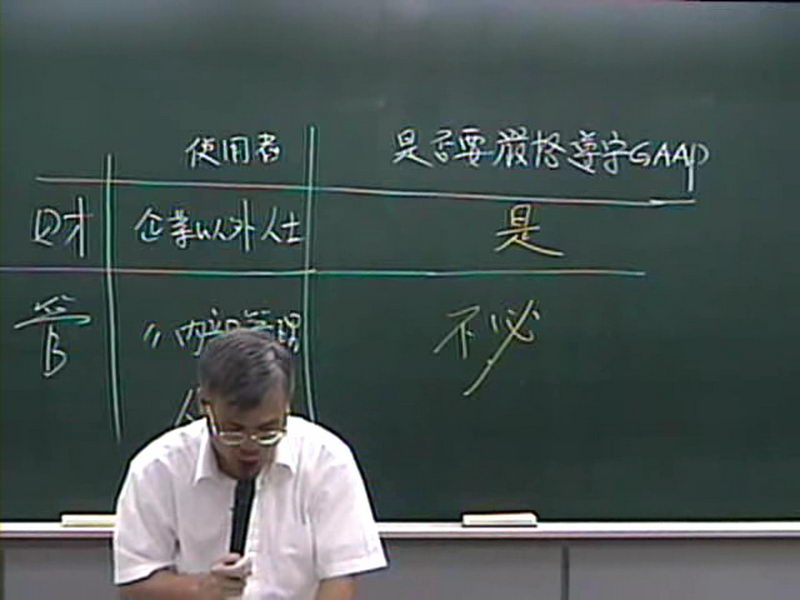 使用者 是否要嚴格遵守GAAP
財 企業以外人士 是
管 〃內部管理 不必